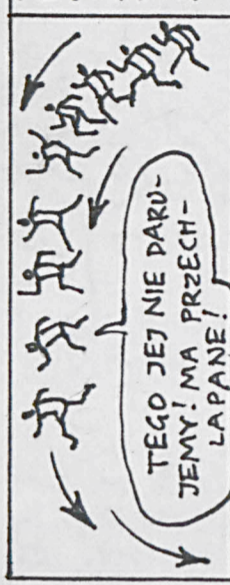 TEGO JEJ NIE DARU-
JEMY! MA PRZECH-
LAPANE!